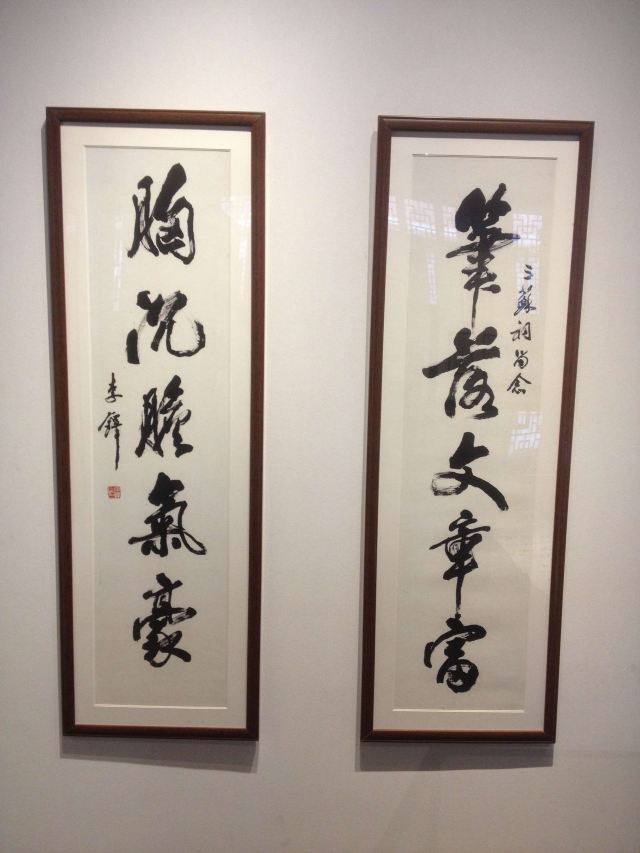 三蘇祠留念
筆落文章富
胸沉膽氣豪
李鐸